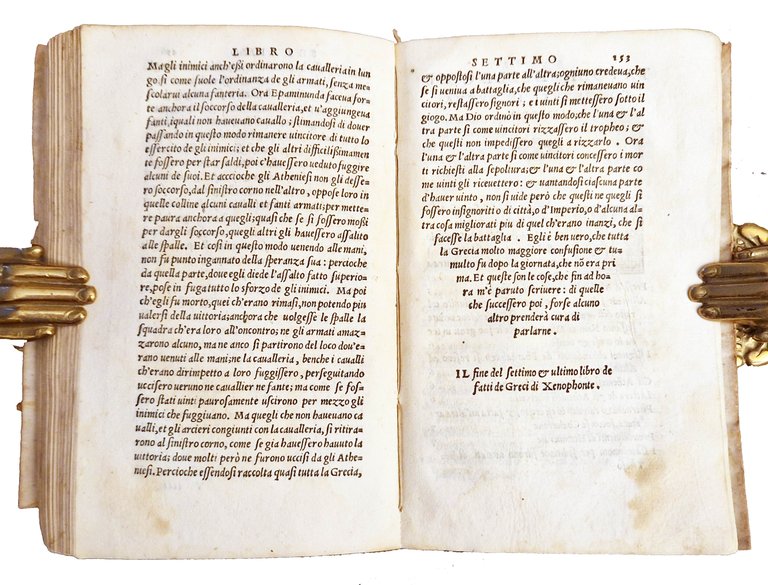 LIBRO
Ma gli inimici anch'eßi ordinarono la caualleria in lun
go si come suole l'ordinanza de gli armati, senza me=
scolarui alcuna fanteria. Ora Epaminunda faceua for=
te anchora il soccorso della caualleria, et u'aggiungeua
fanti, iquali non haueuano cauallo; stimandosi di douer
passando in questo modo rimanere uincitore di tutto lo
essercito de gli inimici; et che gli altri difficilißimamen
te fossero per star saldi, poi c'hauessero ueduto fuggire
alcuni de suoi. Et accioche gli Atheniesi non gli desse=
ro soccorso, dal sinistro corno nell'altro, oppose loro in
quelle colline alcuni caualli et fanti armati; per mette=
re paura anchora a quegli; quasi che se si fossero moßi
per dargli soccorso, quegli altri gli hauessero assalito
alle spalle. Et cosi in questo modo uenendo alle mani,
non fu punto ingannato della speranza sua: percioche
da quella parte, doue egli diede l'assalto fatto superio=
re, pose in fuga tutto lo sforzo de gli inimici. Ma poi
ch'egli fu morto, quei ch'erano rimasi, non potendo piu
ualersi della uittoria; anchora che uolgesse le spalle la
squadra ch'era loro all'oncontro; ne gli armati amaz=
zarono alcuno, ma ne anco si partirono del loco dou'e=
rano uenuti alle mani; ne la caualleria, benche i caualli
ch'erano dirimpetto a loro fuggissero, perseguitando
uccisero ueruno ne cauallier ne fante; ma come se fos=
sero stati uinti paurosamente uscirono per mezzo gli
inimici che fuggiuano. Ma quegli che non haueuano ca
ualli, et gli arcieri congiunti con la caualleria, si ritira=
rono al sinistro corno, come se gia hauessero hauuto la
uittoria; doue molti però ne furono uccisi da gli Athe=
niesi. Percioche essendosi raccolta quasi tutta la Grecia,
SETTIMO 153
& oppostosi l'una parte all'altra; ogniuno credeua, che
se si ueniua a battaglia, che quegli che rimaneuano uin
citori, restassero signori; et i uinti si mettessero sotto il
giogo. Ma Dio ordinò in questo modo, che l'una & l'al
tra parte si come uincitori rizzassero il tropheo; &
che questi non impedissero quegli a rizzarlo. Ora
l'una & l'altra parte si come uincitori concessero i mor
ti richiesti alla sepoltura; & l'una & l'altra parte co
me uinti gli riceuettero: & uantandosi ciascuna parte
d'hauer uinto, non si uide però che questi ne quegli si
fossero insignoriti o di città, o d'Imperio, o d'alcuna al=
tra cosa migliorati piu di quel ch'erano inanzi, che si
facesse la battaglia. Egli è ben uero, che tutta
la Grecia molto maggiore confusione & tu=
multo fu dopo la giornata, che nõ era pri
ma. Et queste son le cose, che fin ad ho
ra m'è paruto scriuere: di quelle
che successero poi, forse alcuno
altro prenderà cura di
parlarne.
IL fine del settimo & ultimo libro de
fatti de Greci di Xenophonte.